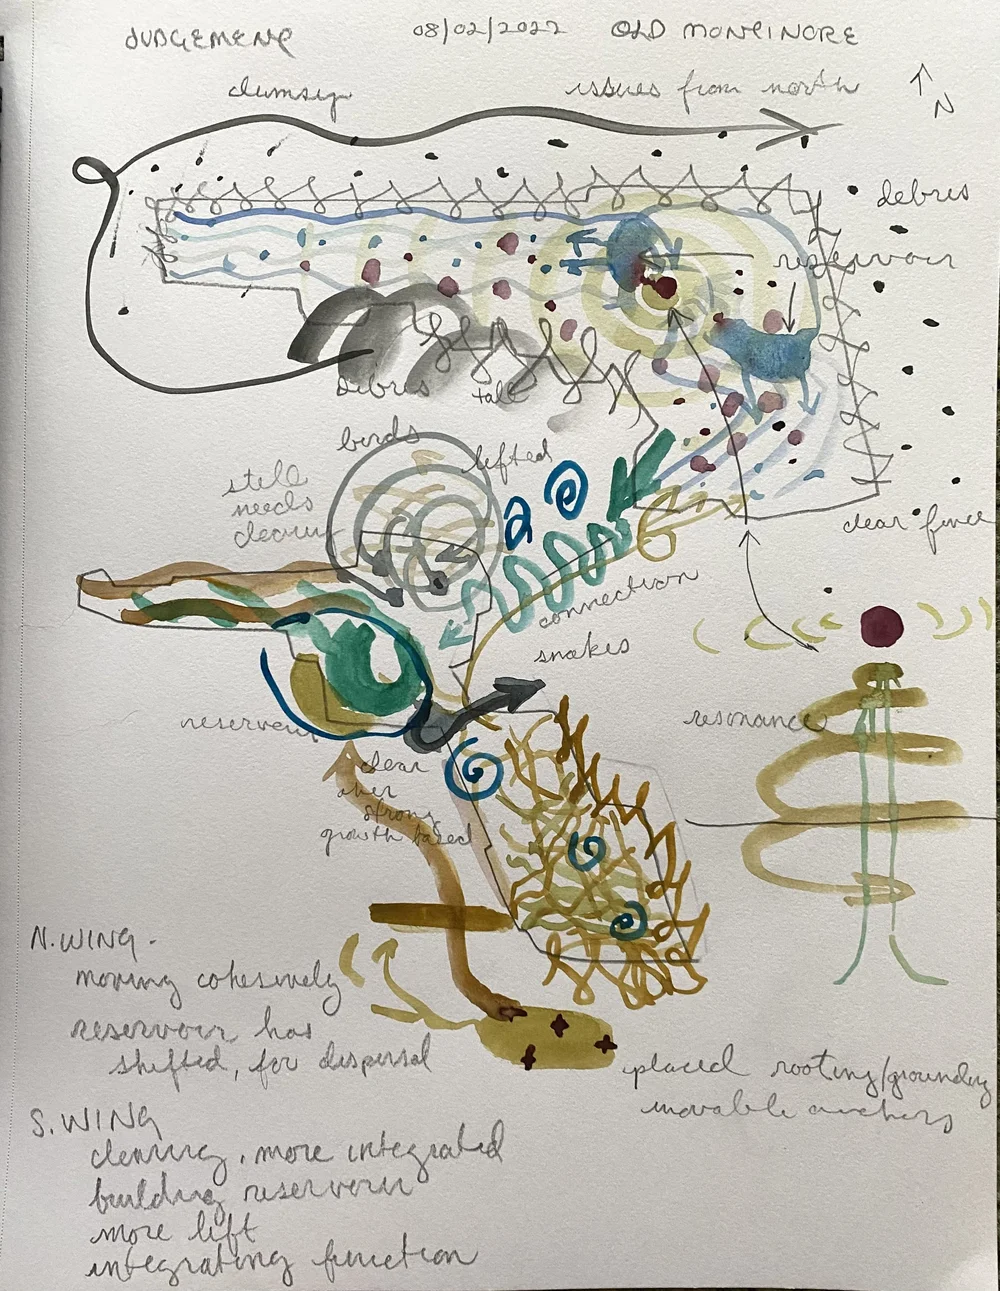 JUDGEMENT 08/02/2022 OLD MONTINORE
clumsy issues from north
N
debris
reservoir
debris tall
birds lifted
still
needs
clearing
clear fence
connection
snakes
reservoir
resonance
clear
other
strong
growth based
N. WING -
moving cohesively
reservoir has
shifted, for dispersal
placed rooting/grounding
movable anchors
S. WING
clearing, more integrated
building reservoir
more lift
integrating function